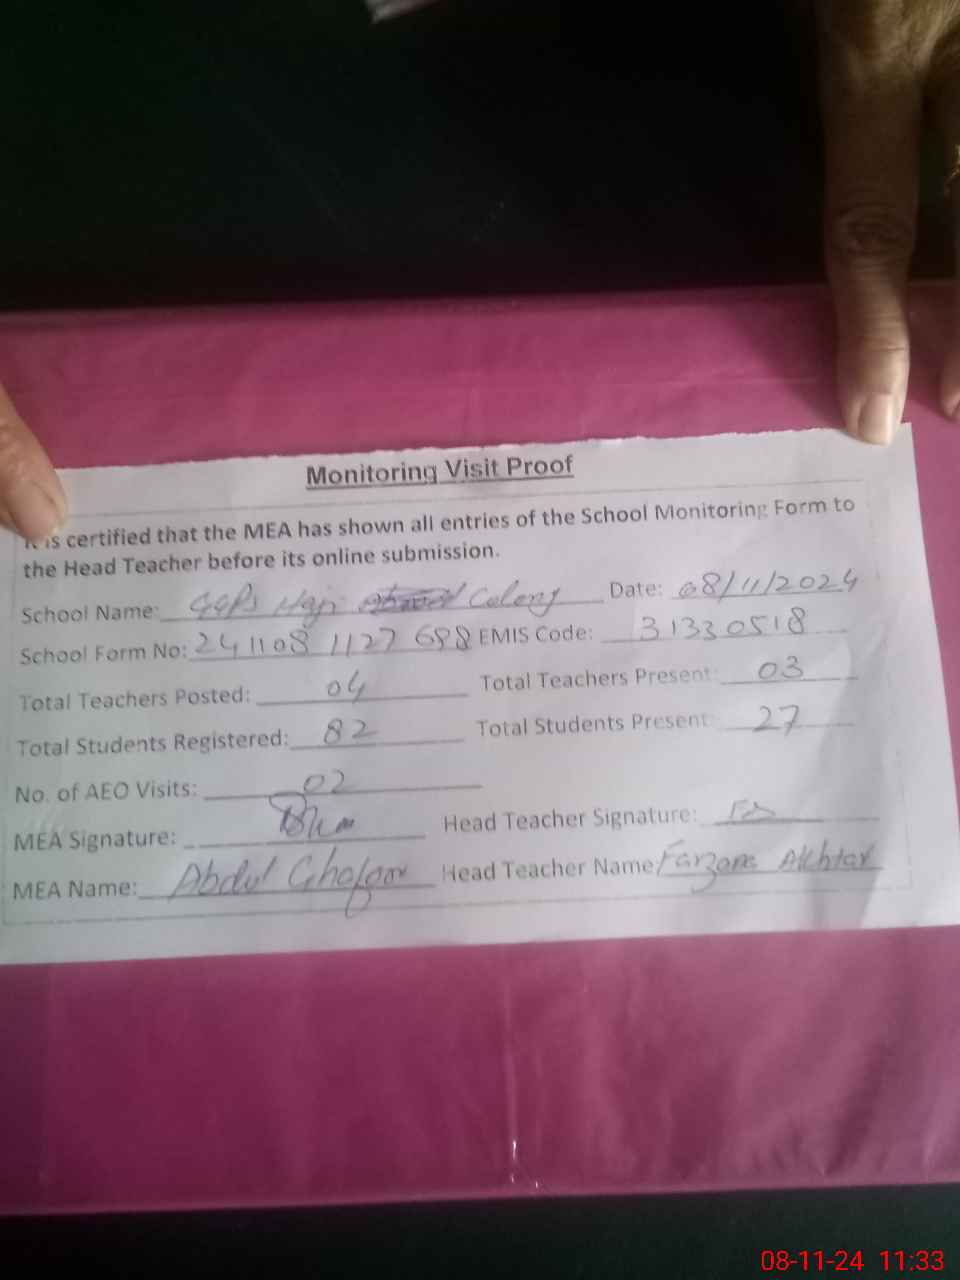 Monitoring Visit Proof
It is certified that the MEA has shown all entries of the School Monitoring Form to
the Head Teacher before its online submission.
School Name: GGPS Haji Colony Date: 08/11/2024
School Form No: 241108 1127 698 EMIS Code: 31330518
Total Teachers Posted: 04 Total Teachers Present: 03
Total Students Registered: 82 Total Students Present: 27
No. of AEO Visits: 02
MEA Signature: Head Teacher Signature:
MEA Name: Abdul Ghafoor Head Teacher Name Farzana Akhtar
08-11-24 11:33